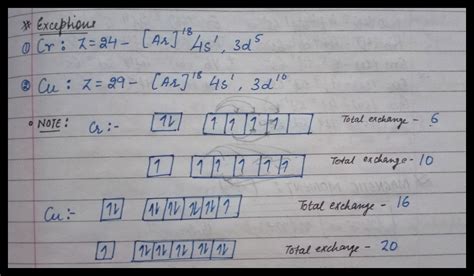 * Exceptions
① Cr : Z=24 - [Ar]¹⁸ 4s¹, 3d⁵
② Cu : Z=29 - [Ar]¹⁸ 4s¹, 3d¹⁰
• NOTE : Cr :- ⥮ 1 1 1 1 Total exchange - 6
1 1 1 1 1 1 Total exchange - 10
Cu :- ⥮ ⥮ ⥮ ⥮ ⥮ 1 Total exchange - 16
1 ⥮ ⥮ ⥮ ⥮ ⥮ Total exchange - 20